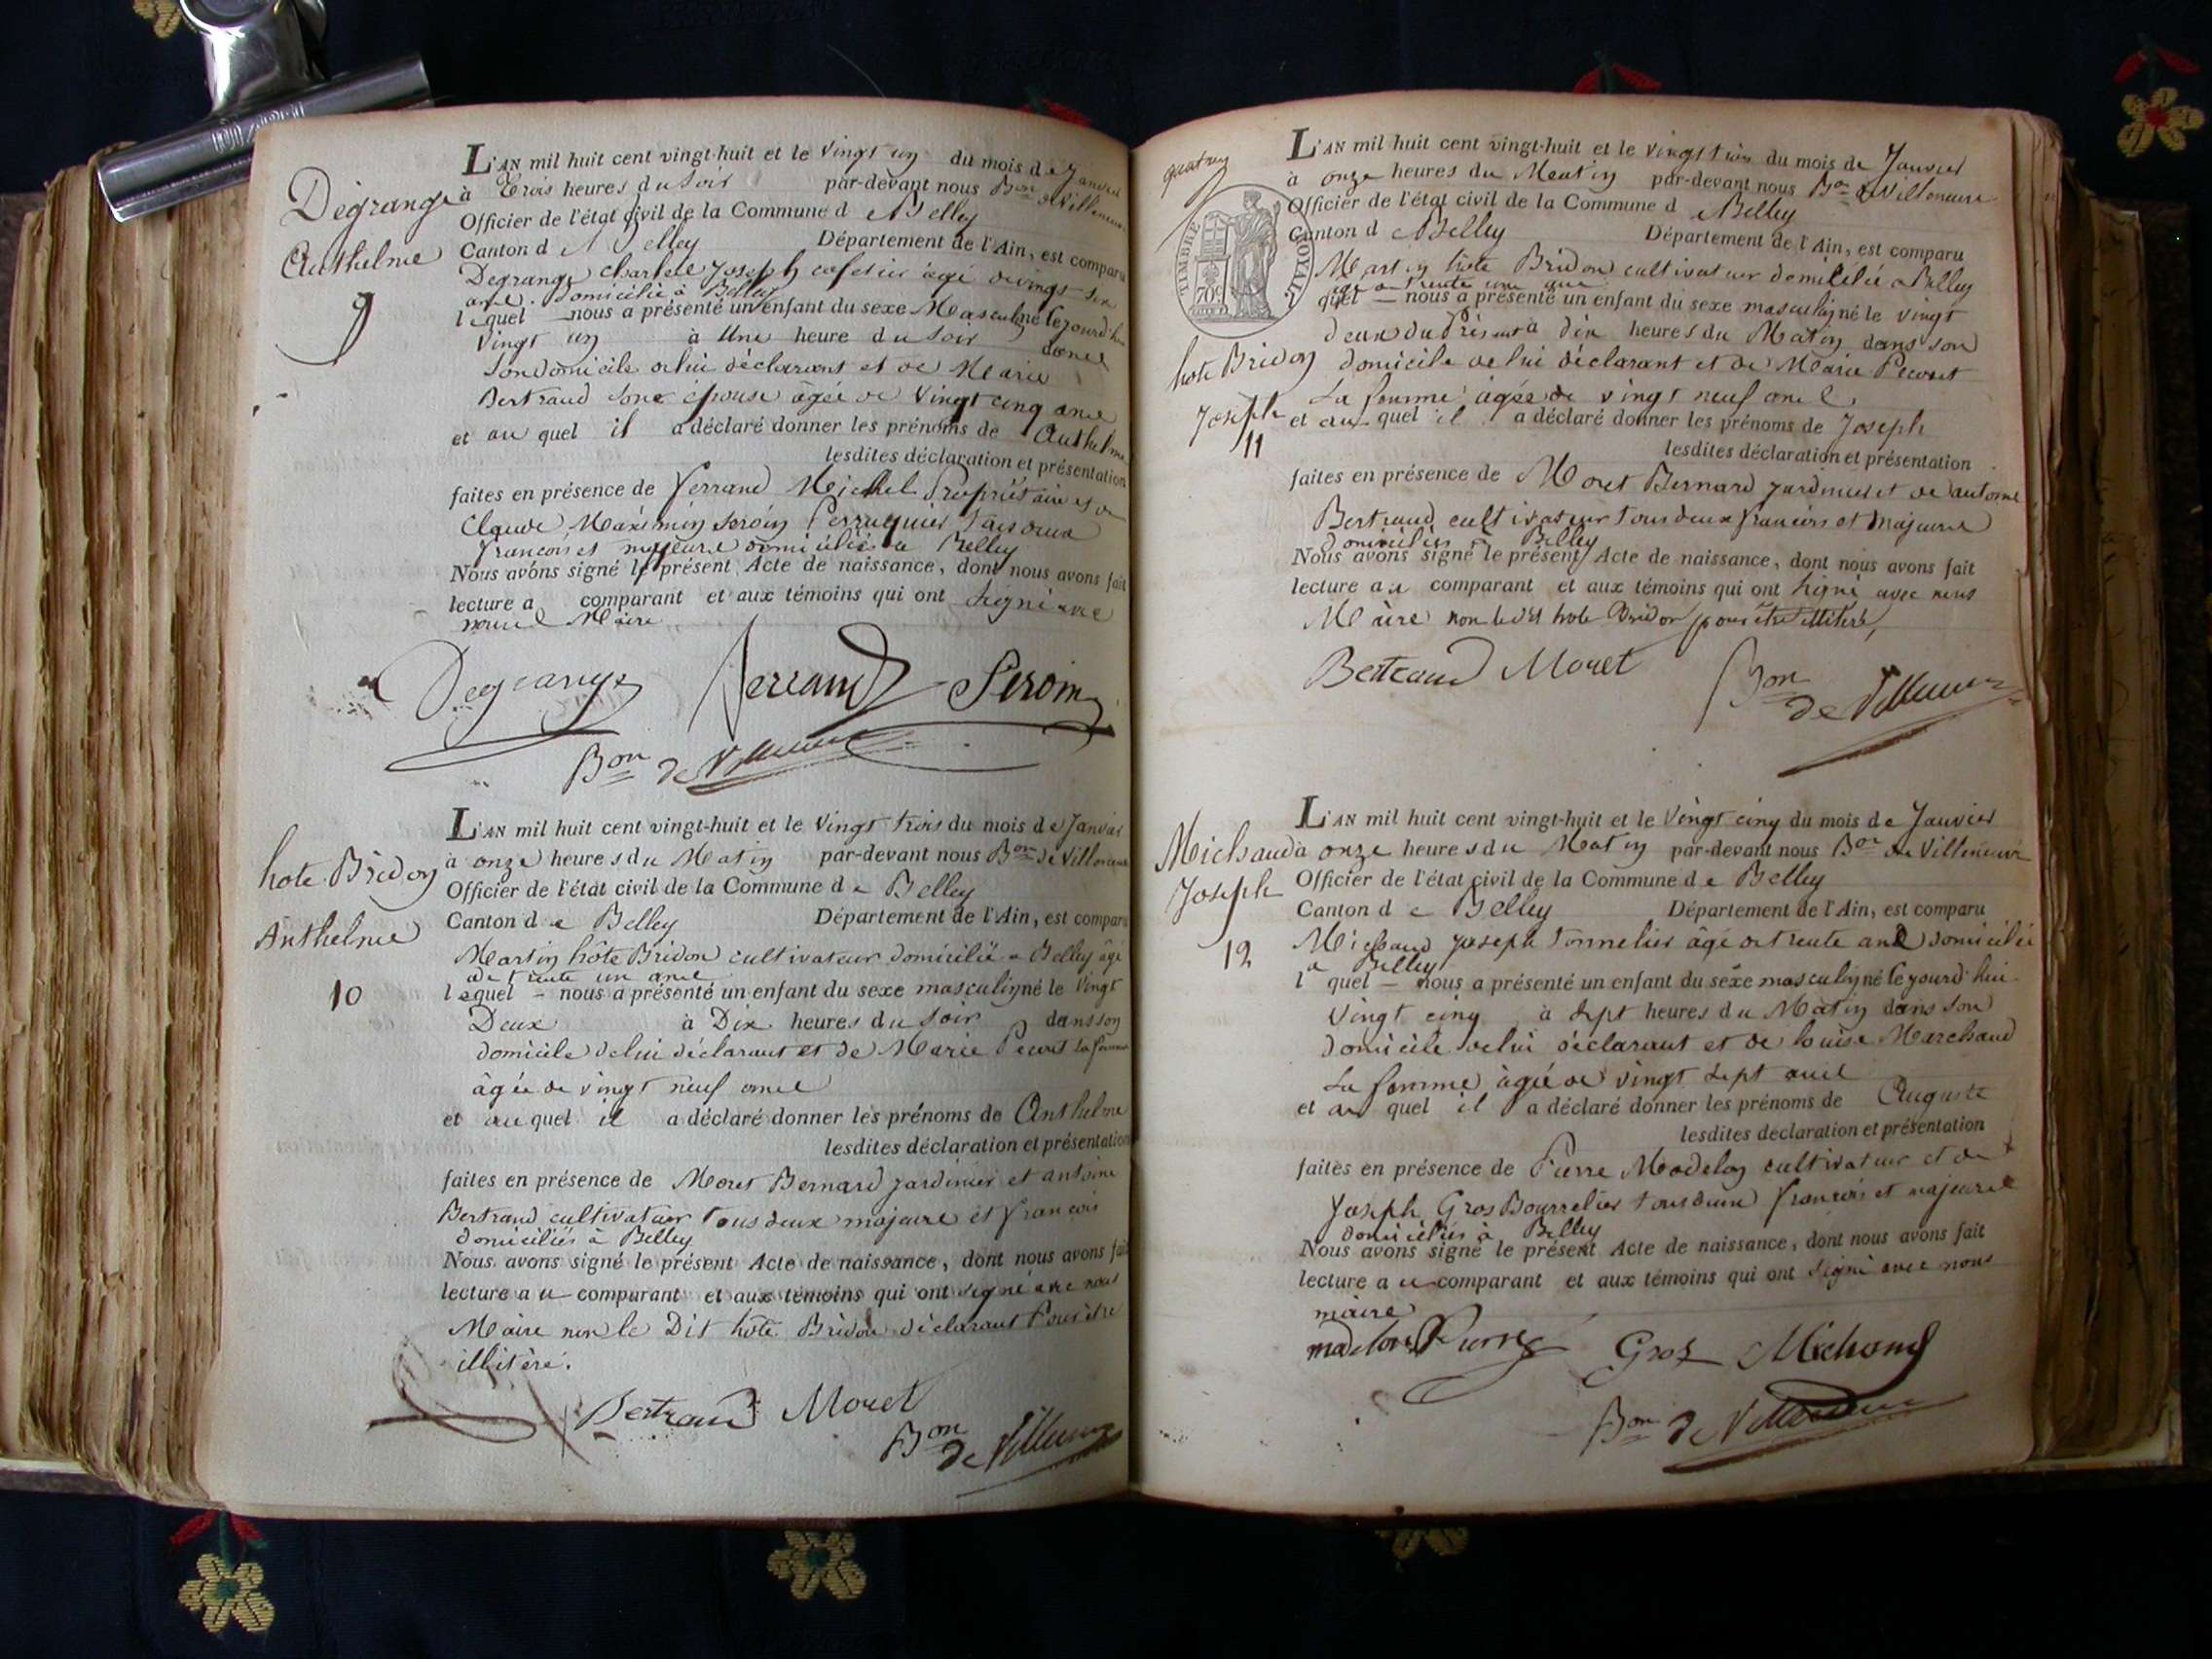 Dégrange
Anthelme
9
L'AN mil huit cent vingt-huit et le vingt un du mois de Janvier
à Trois heures du Soir par-devant nous Bon de Villeneuve
Officier de l'état civil de la Commune d e Belley
Canton d e Belley Département de l'Ain, est comparu
Degrange Charle Joseph cafetier âgé de vingt six
ans domicilié à Belley
lequel nous a présenté un enfant du sexe Masculin né le jourd'hui
Vingt un à Une heure du Soir dans
Son domicile de lui déclarant et de Marie
Bertrand Son épouse âgée de Vingt cinq ans
et au quel il a déclaré donner les prénoms de Anthelme
lesdites déclaration et présentation
faites en présence de Ferrand Michel Propriétaire et de
Claude Maximin Seroin Perruquier Tous deux
francois et majeurs domiciliés à Belley
Nous avons signé le présent Acte de naissance, dont nous avons fait
lecture a comparant et aux témoins qui ont Signé avec
nous Maire
Degrange Ferrand Seroin
Bon de Villeneuve
hote Bridon
Anthelme
10
L'AN mil huit cent vingt-huit et le Vingt trois du mois de Janvier
à onze heures du Matin par-devant nous Bon de Villeneuve
Officier de l'état civil de la Commune d e Belley
Canton d e Belley Département de l'Ain, est comparu
Martin hôte Bridon cultivateur domicilié a Belley âgé
de trente un ans
lequel - nous a présenté un enfant du sexe masculin né le Vingt
Deux à Dix heures du Soir dans son
domicile de lui déclarant et de Marie Pecout Sa femme
âgée de vingt neuf ans
et au quel il a déclaré donner les prénoms de Anthelme
lesdites déclaration et présentation
faites en présence de Moret Bernard jardinier et antoine
Bertrand cultivateur Tous deux majeurs et francois
domiciliés à Belley
Nous avons signé le présent Acte de naissance, dont nous avons fait
lecture a u comparant et aux témoins qui ont signé avec nous
Maire non le Dit hôte Bridon déclarant Pour être
illitéré.
Bertrand Moret
Bon de Villeneuve
TIMBRE ROYAL
70c
hote Bridon
Joseph
11
L'AN mil huit cent vingt-huit et le vingt trois du mois de Janvier
à onze heures du Matin par-devant nous Bon de Villeneuve
Officier de l'état civil de la Commune d e Belley
Canton d e Belley Département de l'Ain, est comparu
Martin hote Bridon cultivateur domicilié a Belley
âgé de trente un ans
quel — nous a présenté un enfant du sexe masculin né le vingt
deux du Présent à dix heures du Matin dans son
domicile de lui déclarant et de Marie Pecout
Sa femme âgée de vingt neuf ans
et au quel il a déclaré donner les prénoms de Joseph
lesdites déclaration et présentation
faites en présence de Moret Bernard jardinier et de antoine
Bertrand cultivateur Tous deux francois et majeurs
domiciliés à Belley
Nous avons signé le présent Acte de naissance, dont nous avons fait
lecture a u comparant et aux témoins qui ont signé avec nous
Maire non ledit hote Bridon pour être illitéré,
Bertrand Moret
Bon de Villeneuve
Michaud
Joseph
12
L'AN mil huit cent vingt-huit et le Vingt cinq du mois de Janvier
à onze heures du Matin par-devant nous Bon de Villeneuve
Officier de l'état civil de la Commune d e Belley
Canton d e Belley Département de l'Ain, est comparu
Michaud Joseph Tonnelier âgé de trente ans domicilié
à Belley
l quel — nous a présenté un enfant du sexe masculin né le jourd'hui
Vingt cinq à Sept heures du Matin dans Son
domicile de lui déclarant et de Louise Marchand
Sa femme âgée de vingt Sept ans
et au quel il a déclaré donner les prénoms de Auguste
lesdites déclaration et présentation
faites en présence de Pierre Modelon cultivateur et de
Joseph Gros Bourrelier tous deux francois et majeurs
domiciliés à Belley
Nous avons signé le présent Acte de naissance, dont nous avons fait
lecture a u comparant et aux témoins qui ont signé avec nous
maire
madelon Pierre Gros Michaud
Bon de Villeneuve